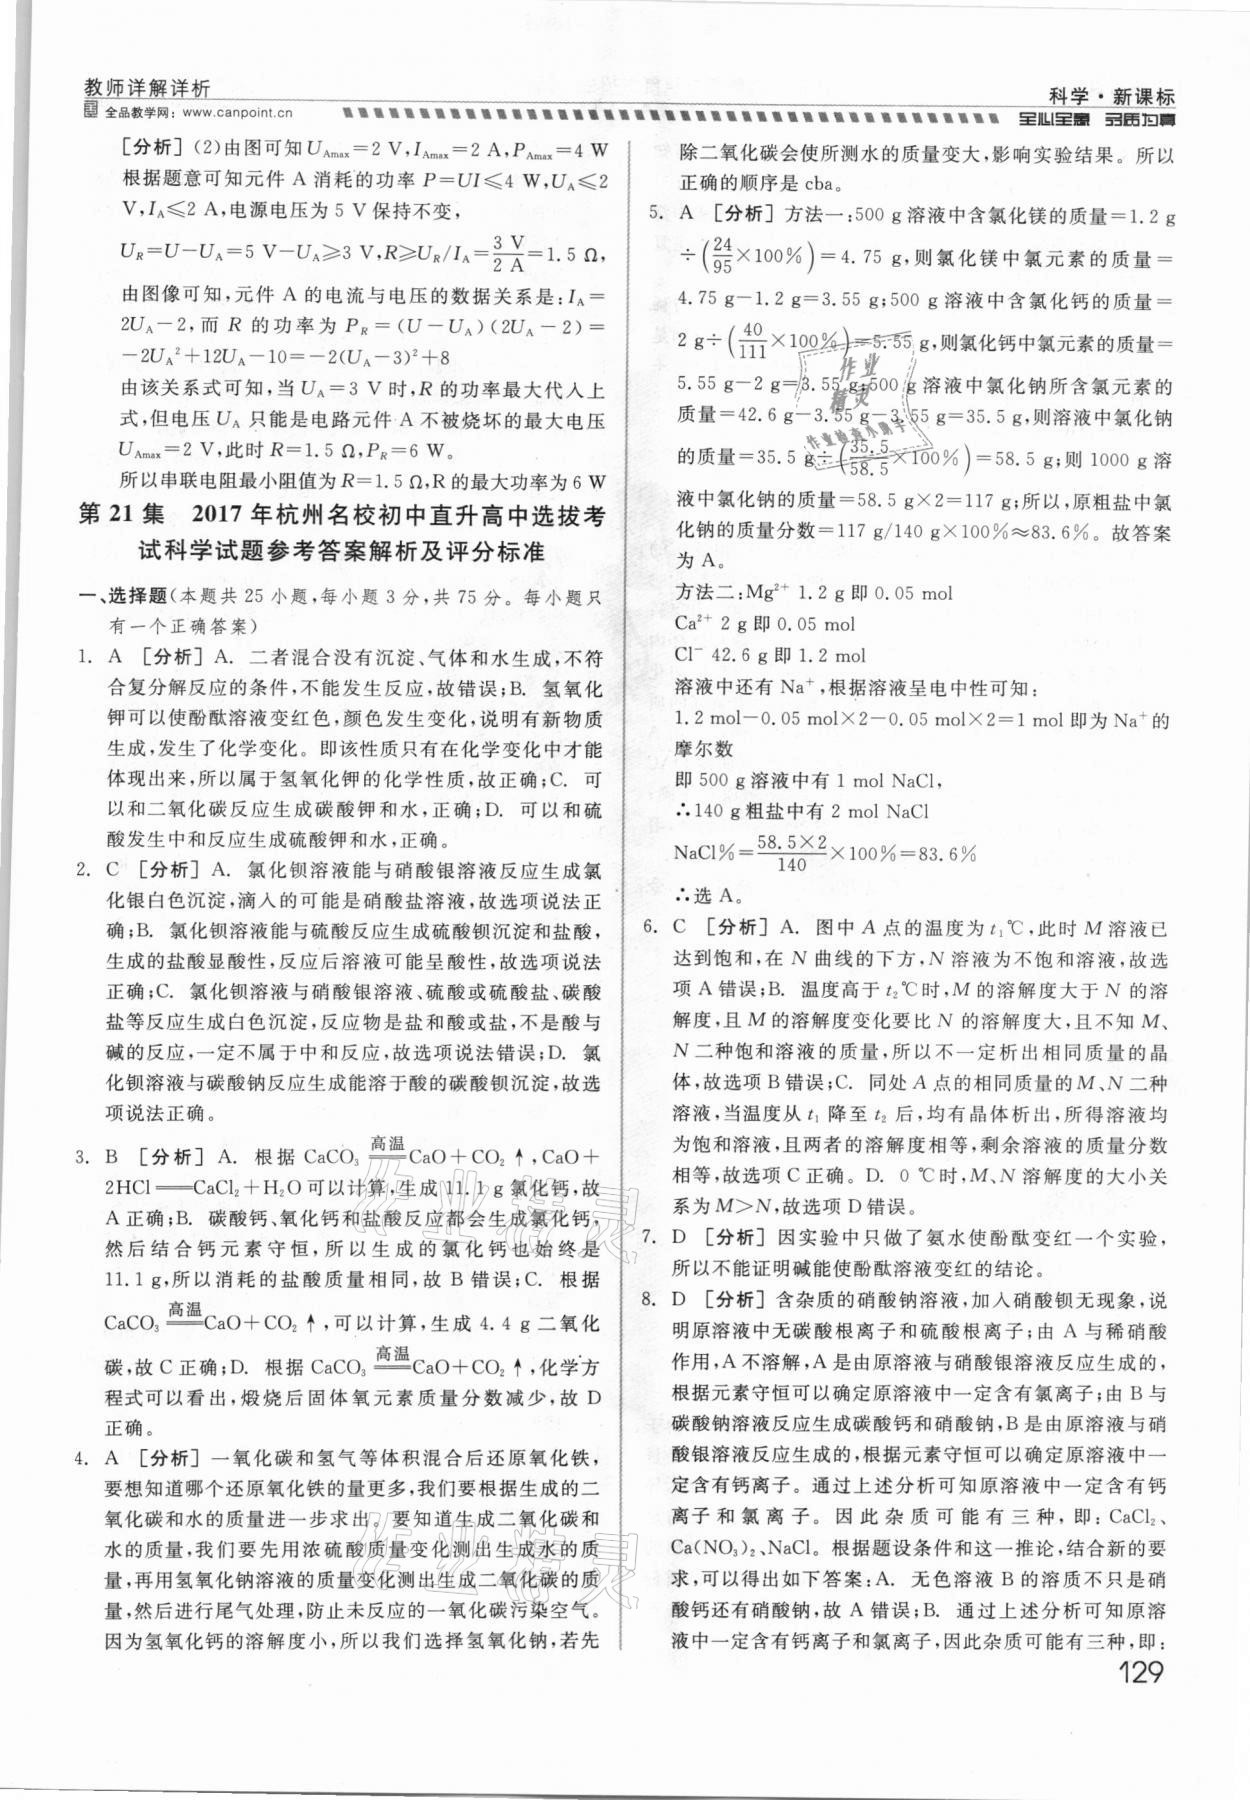 教师详解详析
全品教学网：www.canpoint.cn
科学·新课标
全心全意 品质为真
［分析］(2)由图可知U_Amax＝2 V，I_Amax＝2 A，P_Amax＝4 W
根据题意可知元件 A 消耗的功率 P＝UI≤4 W，U_A≤2
V，I_A≤2 A，电源电压为 5 V 保持不变，
U_R＝U－U_A＝5 V－U_A≥3 V，R≥U_R/I_A＝3 V/2 A＝1.5 Ω，
由图像可知，元件 A 的电流与电压的数据关系是：I_A＝
2U_A－2，而 R 的功率为 P_R＝(U－U_A)(2U_A－2)＝
－2U_A²＋12U_A－10＝－2(U_A－3)²＋8
由该关系式可知，当 U_A＝3 V 时，R 的功率最大代人上
式，但电压 U_A 只能是电路元件 A 不被烧坏的最大电压
U_Amax＝2 V，此时 R＝1.5 Ω，P_R＝6 W。
所以串联电阻最小阻值为 R＝1.5 Ω，R 的最大功率为 6 W
第 21 集 2017 年杭州名校初中直升高中选拔考
试科学试题参考答案解析及评分标准
一、选择题(本题共 25 小题，每小题 3 分，共 75 分。每小题只
有一个正确答案)
1. A ［分析］A. 二者混合没有沉淀、气体和水生成，不符
合复分解反应的条件，不能发生反应，故错误；B. 氢氧化
钾可以使酚酞溶液变红色，颜色发生变化，说明有新物质
生成，发生了化学变化。即该性质只有在化学变化中才能
体现出来，所以属于氢氧化钾的化学性质，故正确；C. 可
以和二氧化碳反应生成碳酸钾和水，正确；D. 可以和硫
酸发生中和反应生成硫酸钾和水，正确。
2. C ［分析］A. 氯化钡溶液能与硝酸银溶液反应生成氯
化银白色沉淀，滴入的可能是硝酸盐溶液，故选项说法正
确；B. 氯化钡溶液能与硫酸反应生成硫酸钡沉淀和盐酸，
生成的盐酸显酸性，反应后溶液可能呈酸性，故选项说法
正确；C. 氯化钡溶液与硝酸银溶液、硫酸或硫酸盐、碳酸
盐等反应生成白色沉淀，反应物是盐和酸或盐，不是酸与
碱的反应，一定不属于中和反应，故选项说法错误；D. 氯
化钡溶液与碳酸钠反应生成能溶于酸的碳酸钡沉淀，故选
项说法正确。
3. B ［分析］A. 根据 CaCO₃ ══高温══ CaO＋CO₂↑，CaO＋
2HCl══CaCl₂＋H₂O 可以计算，生成 11.1 g 氯化钙，故
A 正确；B. 碳酸钙、氧化钙和盐酸反应都会生成氯化钙，
然后结合钙元素守恒，所以生成的氯化钙也始终是
11.1 g，所以消耗的盐酸质量相同，故 B 错误；C. 根据
CaCO₃ ══高温══ CaO＋CO₂↑，可以计算，生成 4.4 g 二氧化
碳，故 C 正确；D. 根据 CaCO₃ ══高温══ CaO＋CO₂↑，化学方
程式可以看出，煅烧后固体氧元素质量分数减少，故 D
正确。
4. A ［分析］一氧化碳和氢气等体积混合后还原氧化铁，
要想知道哪个还原氧化铁的量更多，我们要根据生成的二
氧化碳和水的质量进一步求出。要知道生成二氧化碳和
水的质量，我们要先用浓硫酸质量变化测出生成水的质
量，再用氢氧化钠溶液的质量变化测出生成二氧化碳的质
量，然后进行尾气处理，防止未反应的一氧化碳污染空气。
因为氢氧化钙的溶解度小，所以我们选择氢氧化钠，若先
除二氧化碳会使所测水的质量变大，影响实验结果。所以
正确的顺序是 cba。
5. A ［分析］方法一：500 g 溶液中含氯化镁的质量＝1.2 g
÷(24/95×100%)＝4.75 g，则氯化镁中氯元素的质量＝
4.75 g－1.2 g＝3.55 g；500 g 溶液中含氯化钙的质量＝
2 g÷(40/111×100%)＝5.55 g，则氯化钙中氯元素的质量＝
5.55 g－2 g＝3.55 g；500 g 溶液中氯化钠所含氯元素的
质量＝42.6 g－3.55 g－3.55 g＝35.5 g，则溶液中氯化钠
的质量＝35.5 g÷(35.5/58.5×100%)＝58.5 g；则 1000 g 溶
液中氯化钠的质量＝58.5 g×2＝117 g；所以，原粗盐中氯
化钠的质量分数＝117 g/140 g×100%≈83.6%。故答案
为 A。
方法二：Mg²⁺ 1.2 g 即 0.05 mol
Ca²⁺ 2 g 即 0.05 mol
Cl⁻ 42.6 g 即 1.2 mol
溶液中还有 Na⁺，根据溶液呈电中性可知：
1.2 mol－0.05 mol×2－0.05 mol×2＝1 mol 即为 Na⁺的
摩尔数
即 500 g 溶液中有 1 mol NaCl，
∴140 g 粗盐中有 2 mol NaCl
NaCl%＝58.5×2/140×100%＝83.6%
∴选 A。
6. C ［分析］A. 图中 A 点的温度为 t₁℃，此时 M 溶液已
达到饱和，在 N 曲线的下方，N 溶液为不饱和溶液，故选
项 A 错误；B. 温度高于 t₂℃时，M 的溶解度大于 N 的溶
解度，且 M 的溶解度变化要比 N 的溶解度大，且不知 M、
N 二种饱和溶液的质量，所以不一定析出相同质量的晶
体，故选项 B 错误；C. 同处 A 点的相同质量的 M、N 二种
溶液，当温度从 t₁ 降至 t₂ 后，均有晶体析出，所得溶液均
为饱和溶液，且两者的溶解度相等，剩余溶液的质量分数
相等，故选项 C 正确。D. 0 ℃时，M、N 溶解度的大小关
系为 M＞N，故选项 D 错误。
7. D ［分析］因实验中只做了氨水使酚酞变红一个实验，
所以不能证明碱能使酚酞溶液变红的结论。
8. D ［分析］含杂质的硝酸钠溶液，加入硝酸钡无现象，说
明原溶液中无碳酸根离子和硫酸根离子；由 A 与稀硝酸
作用，A 不溶解，A 是由原溶液与硝酸银溶液反应生成的，
根据元素守恒可以确定原溶液中一定含有氯离子；由 B 与
碳酸钠溶液反应生成碳酸钙和硝酸钠，B 是由原溶液与硝
酸银溶液反应生成的，根据元素守恒可以确定原溶液中一
定含有钙离子。通过上述分析可知原溶液中一定含有钙
离子和氯离子。因此杂质可能有三种，即：CaCl₂、
Ca(NO₃)₂、NaCl。根据题设条件和这一推论，结合新的要
求，可以得出如下答案：A. 无色溶液 B 的溶质不只是硝
酸钙还有硝酸钠，故 A 错误；B. 通过上述分析可知原溶
液中一定含有钙离子和氯离子，因此杂质可能有三种，即：
129
作业精灵
作业精灵
作业精灵